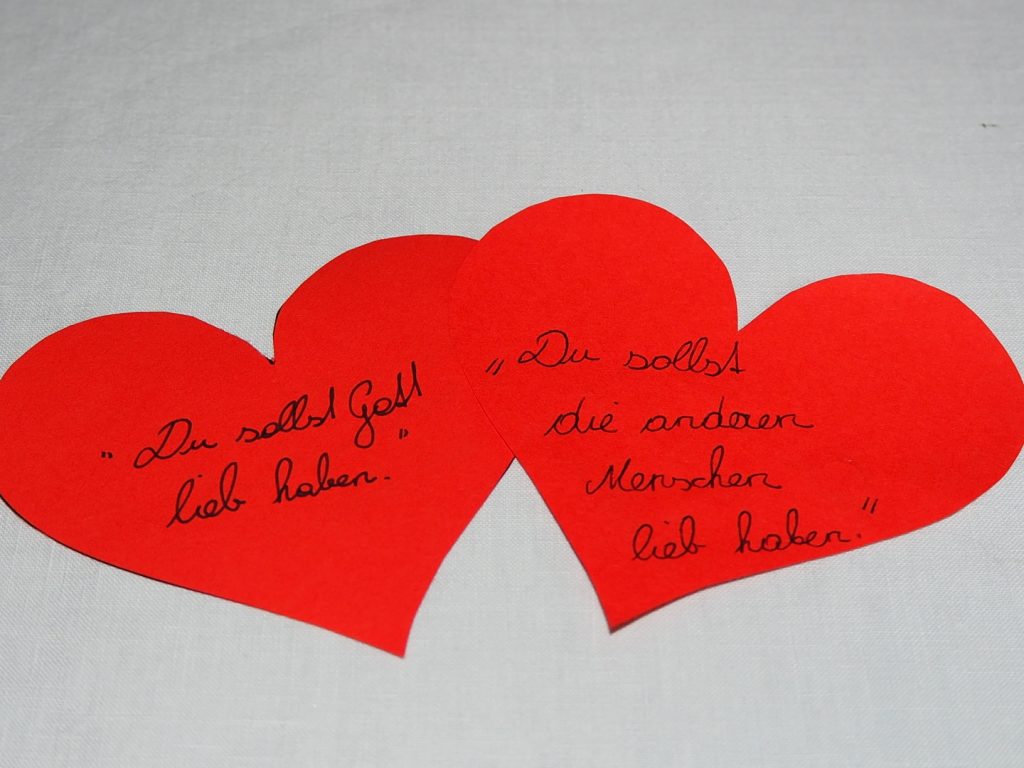 "Du sollst Gott
lieb haben."
„Du sollst
die anderen
Menschen
lieb haben."